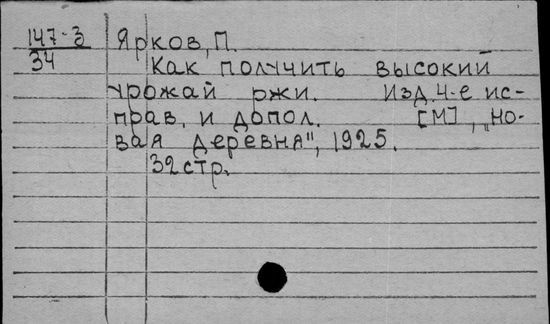 147-3 Ярков, П.
34
Как получить высокий
урожай ржи. Изд. 4-е ис-
прав. и допол. [М], „Но-
вая деревня", 1925.
32 стр.